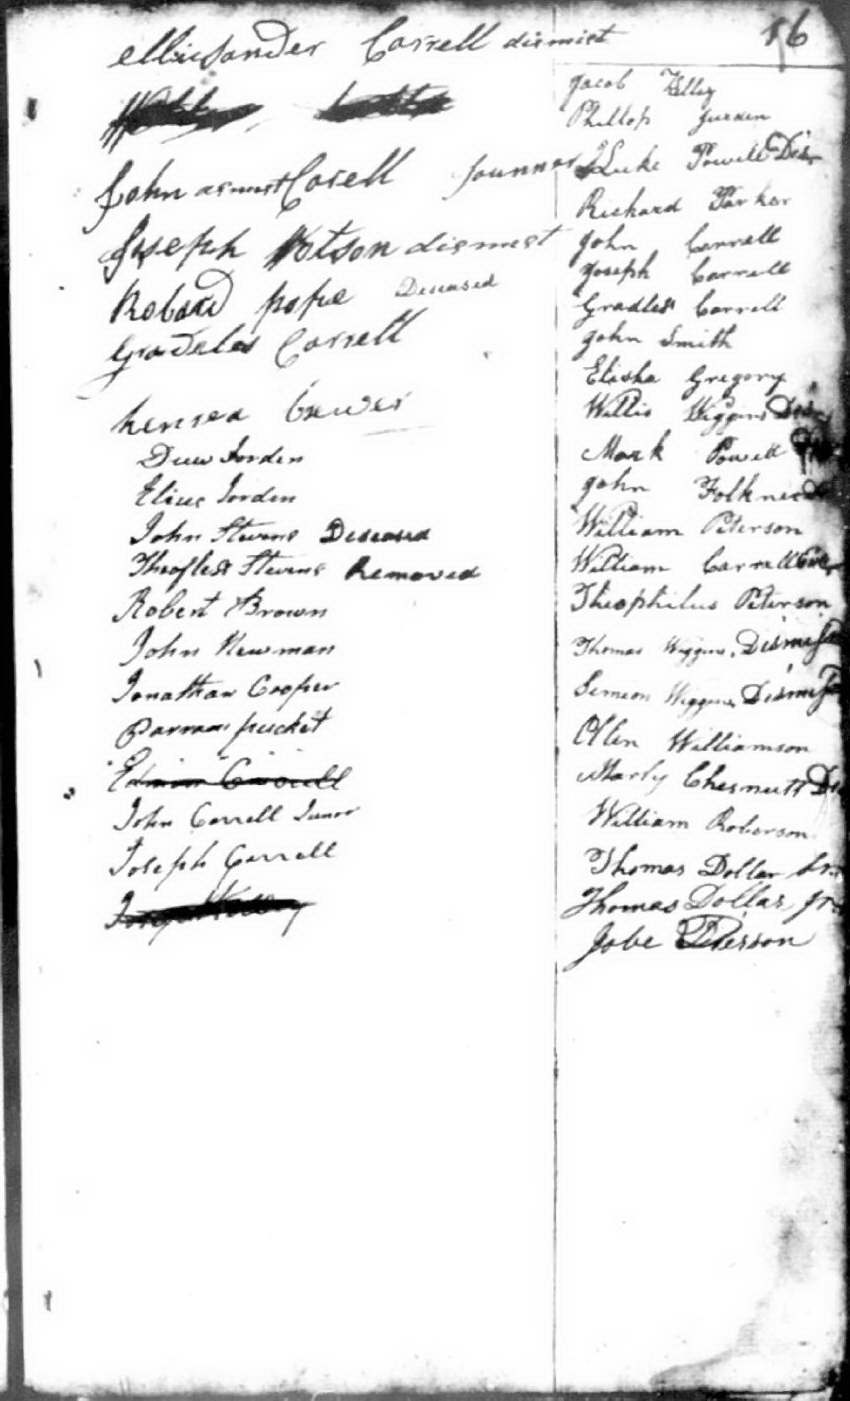 16
Carrell dismist
John Corell
Joseph Wotson dismest
Robard pope Deceased
Gradeles Correll
Drew Jorden
Elius Jorden
John Stevens Deceased
Theofless Stevens Removed
Robert Brown
John Newman
Jonathan Cooper
puscket
John Correll Junor
Joseph Correll
Jacob Kelley
Phillop Jurden
Luke Powell Dis
Richard Parker
John Correll
Joseph Correll
Gradless Correll
John Smith
Elisha Gregory
Willis Wiggins
Mark Powell
John Folkner
William Peterson
William Carrell
Theophilus Peterson
Thomas Wiggins, Dismiss
Simeon Wiggins, Dismiss
Allen Williamson
Chesnutt
William Roberson
Thomas Dollar Sr
Thomas Dollar, Jr
Jobe Peterson